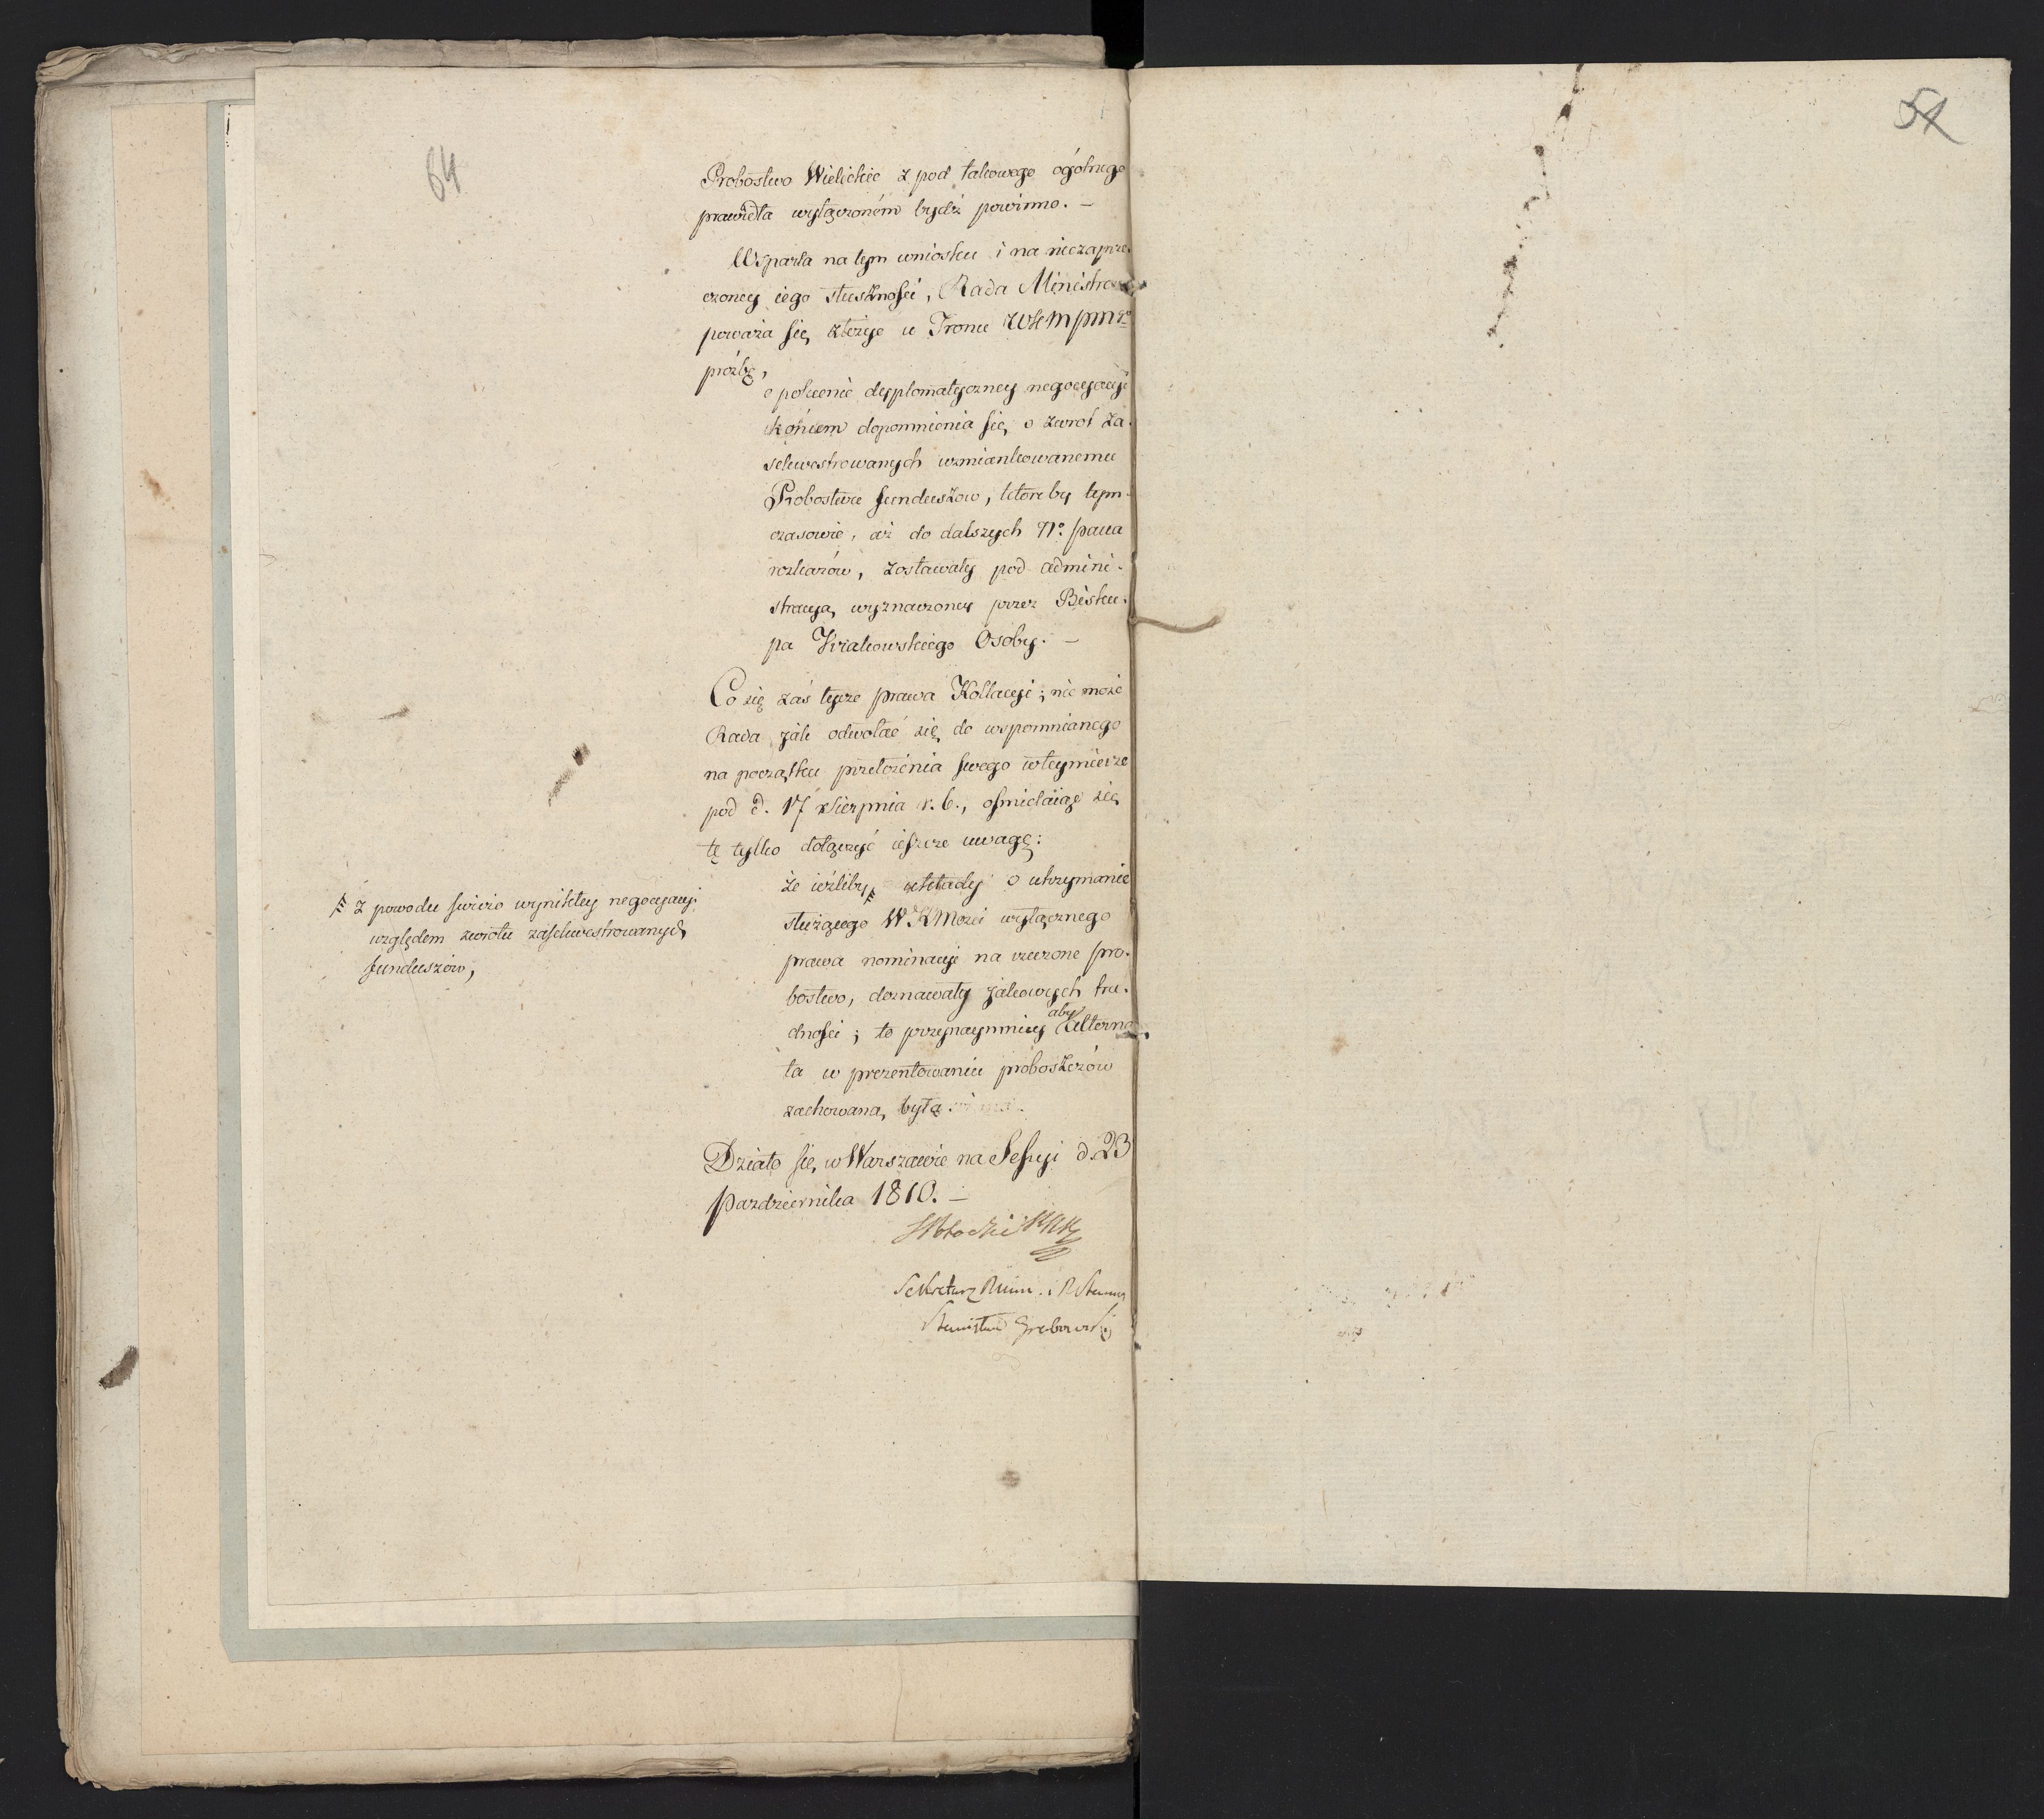 64
Probostwo Wielickie z pod takowego ogólnego
prawidła wyłączoném bydź powinno. –
Wsparta na tym wniosku i na niezaprze-
czoney iego słuszności, Rada Ministrow
poważa się złożyć u Tronu
prózbę,
o polecenie dyplomatyczney negocyacyi
końcem dopomnienia się o zwrot za-
sekwestrowanych wzmiankowanemu
Probostwu funduszow, które by tym-
czasowie, aż do dalszych Nº. Pana
rozkazów, zostawały pod admini-
stracyą wyznaczoney przez Bisku-
pa Krakowskiego Osoby. –
Co się zaś tycze prawa Kollacyi; nie może
Rada jak odwołać się do wspomnianego
na początku przełożenia swego w tey mierze
pod d. 17 Sierpnia r. b., ośmielaiąc się
tę tylko dołączyć ieszcze uwagę:
że ieśliby układy o utrzymanie
służącego W. K Mości wyłącznego
prawa nominacyi na rzeczone pro-
bostwo, doznawały jakowych tru-
dności; to przynaymniey aby alterna-
ta w prezentowaniu proboszczów
zachowaną była.
# z powodu świeżo wynikłey negocyacyi
względem zwrotu zasekwestrowanych
funduszów,
Działo się w Warszawie na Sessyi d. 23
Pazdziernika 1810. –
Sekretarz
Stanisław Grabowski
51